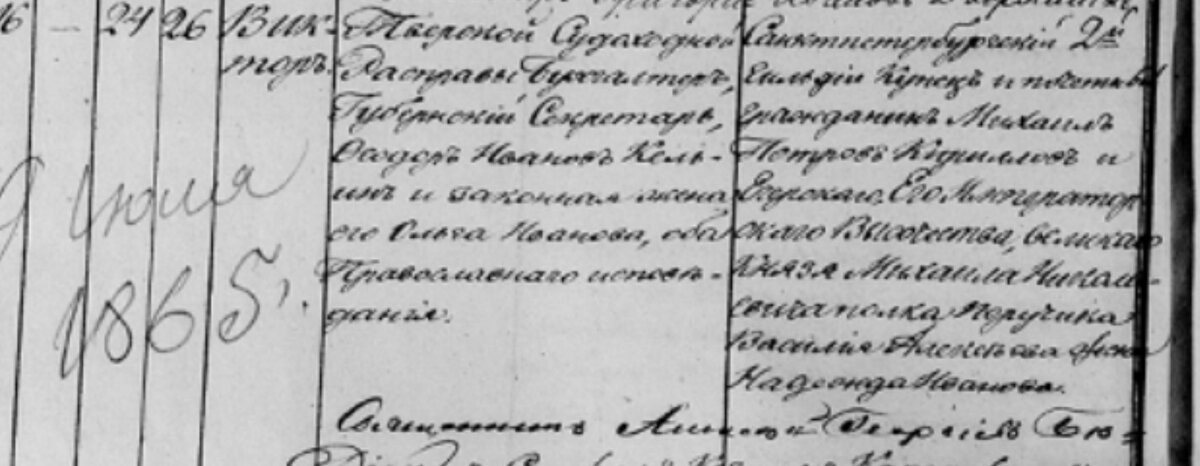 16 — 24 26 Вик-
торъ.
Тверской Судоходной
Расправы Бухгалтеръ,
Губернскій Секретарь,
Ѳеодоръ Ивановъ Кель-
инъ и законная жена
его Ольга Иванова, оба
Православнаго исповѣ-
данія.
Санктпетербургскій 2й
гильдіи Купецъ и почетный
гражданинъ Михаилъ
Петровъ Кирилловъ и
Егерскаго Его Император
скаго Высочества, великаго
Князя Михаила Николае-
вича полка Поручика
Василія Алексѣева жена
Надежда Иванова.
9 Июля
1865 г.
Священникъ Георгій